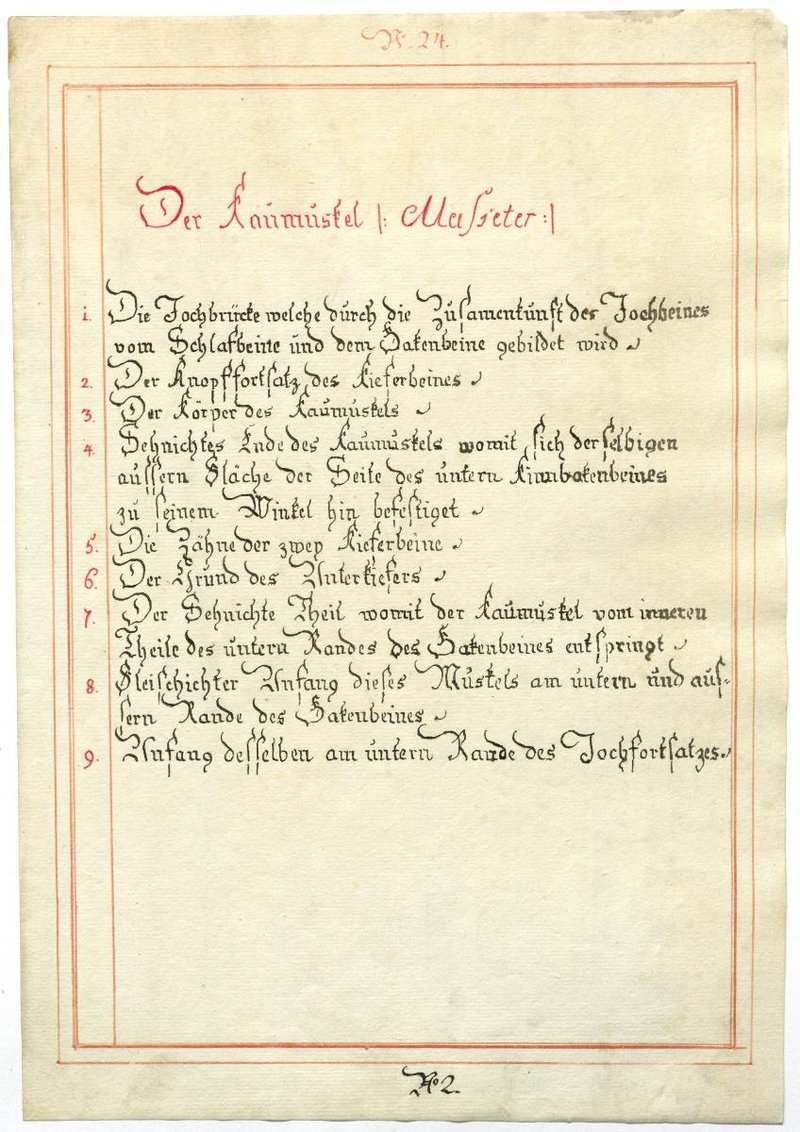 N. 24.
Der Kaumuskel |: Masseter :|
1. Die Jochbrücke welche durch die Zusamenkunft des Jochbeines
vom Schlafbeine und dem Bakenbeine gebildet wird
2. Der Knopffortsatz des Kieferbeines
3. Der Körper des Kaumuskels
4. Sehnichtes Ende des Kaumuskels womit sich derselbigen
aussern Fläche der Seite des untern Kinnbakenbeines
zu seinem Winkel hin befestiget
5. Die Zähne der zwey Kieferbeine
6. Der Grund des Unterkiefers
7. Der Sehnichte Theil womit der Kaumuskel vom inneren
Theile des untern Randes des Bakenbeines entspringt
8. Fleischichter Anfang dieses Muskels am untern und aus-
sern Rande des Bakenbeines
9. Anfang desselben am untern Rande des Jochfortsatzes.
No 2.